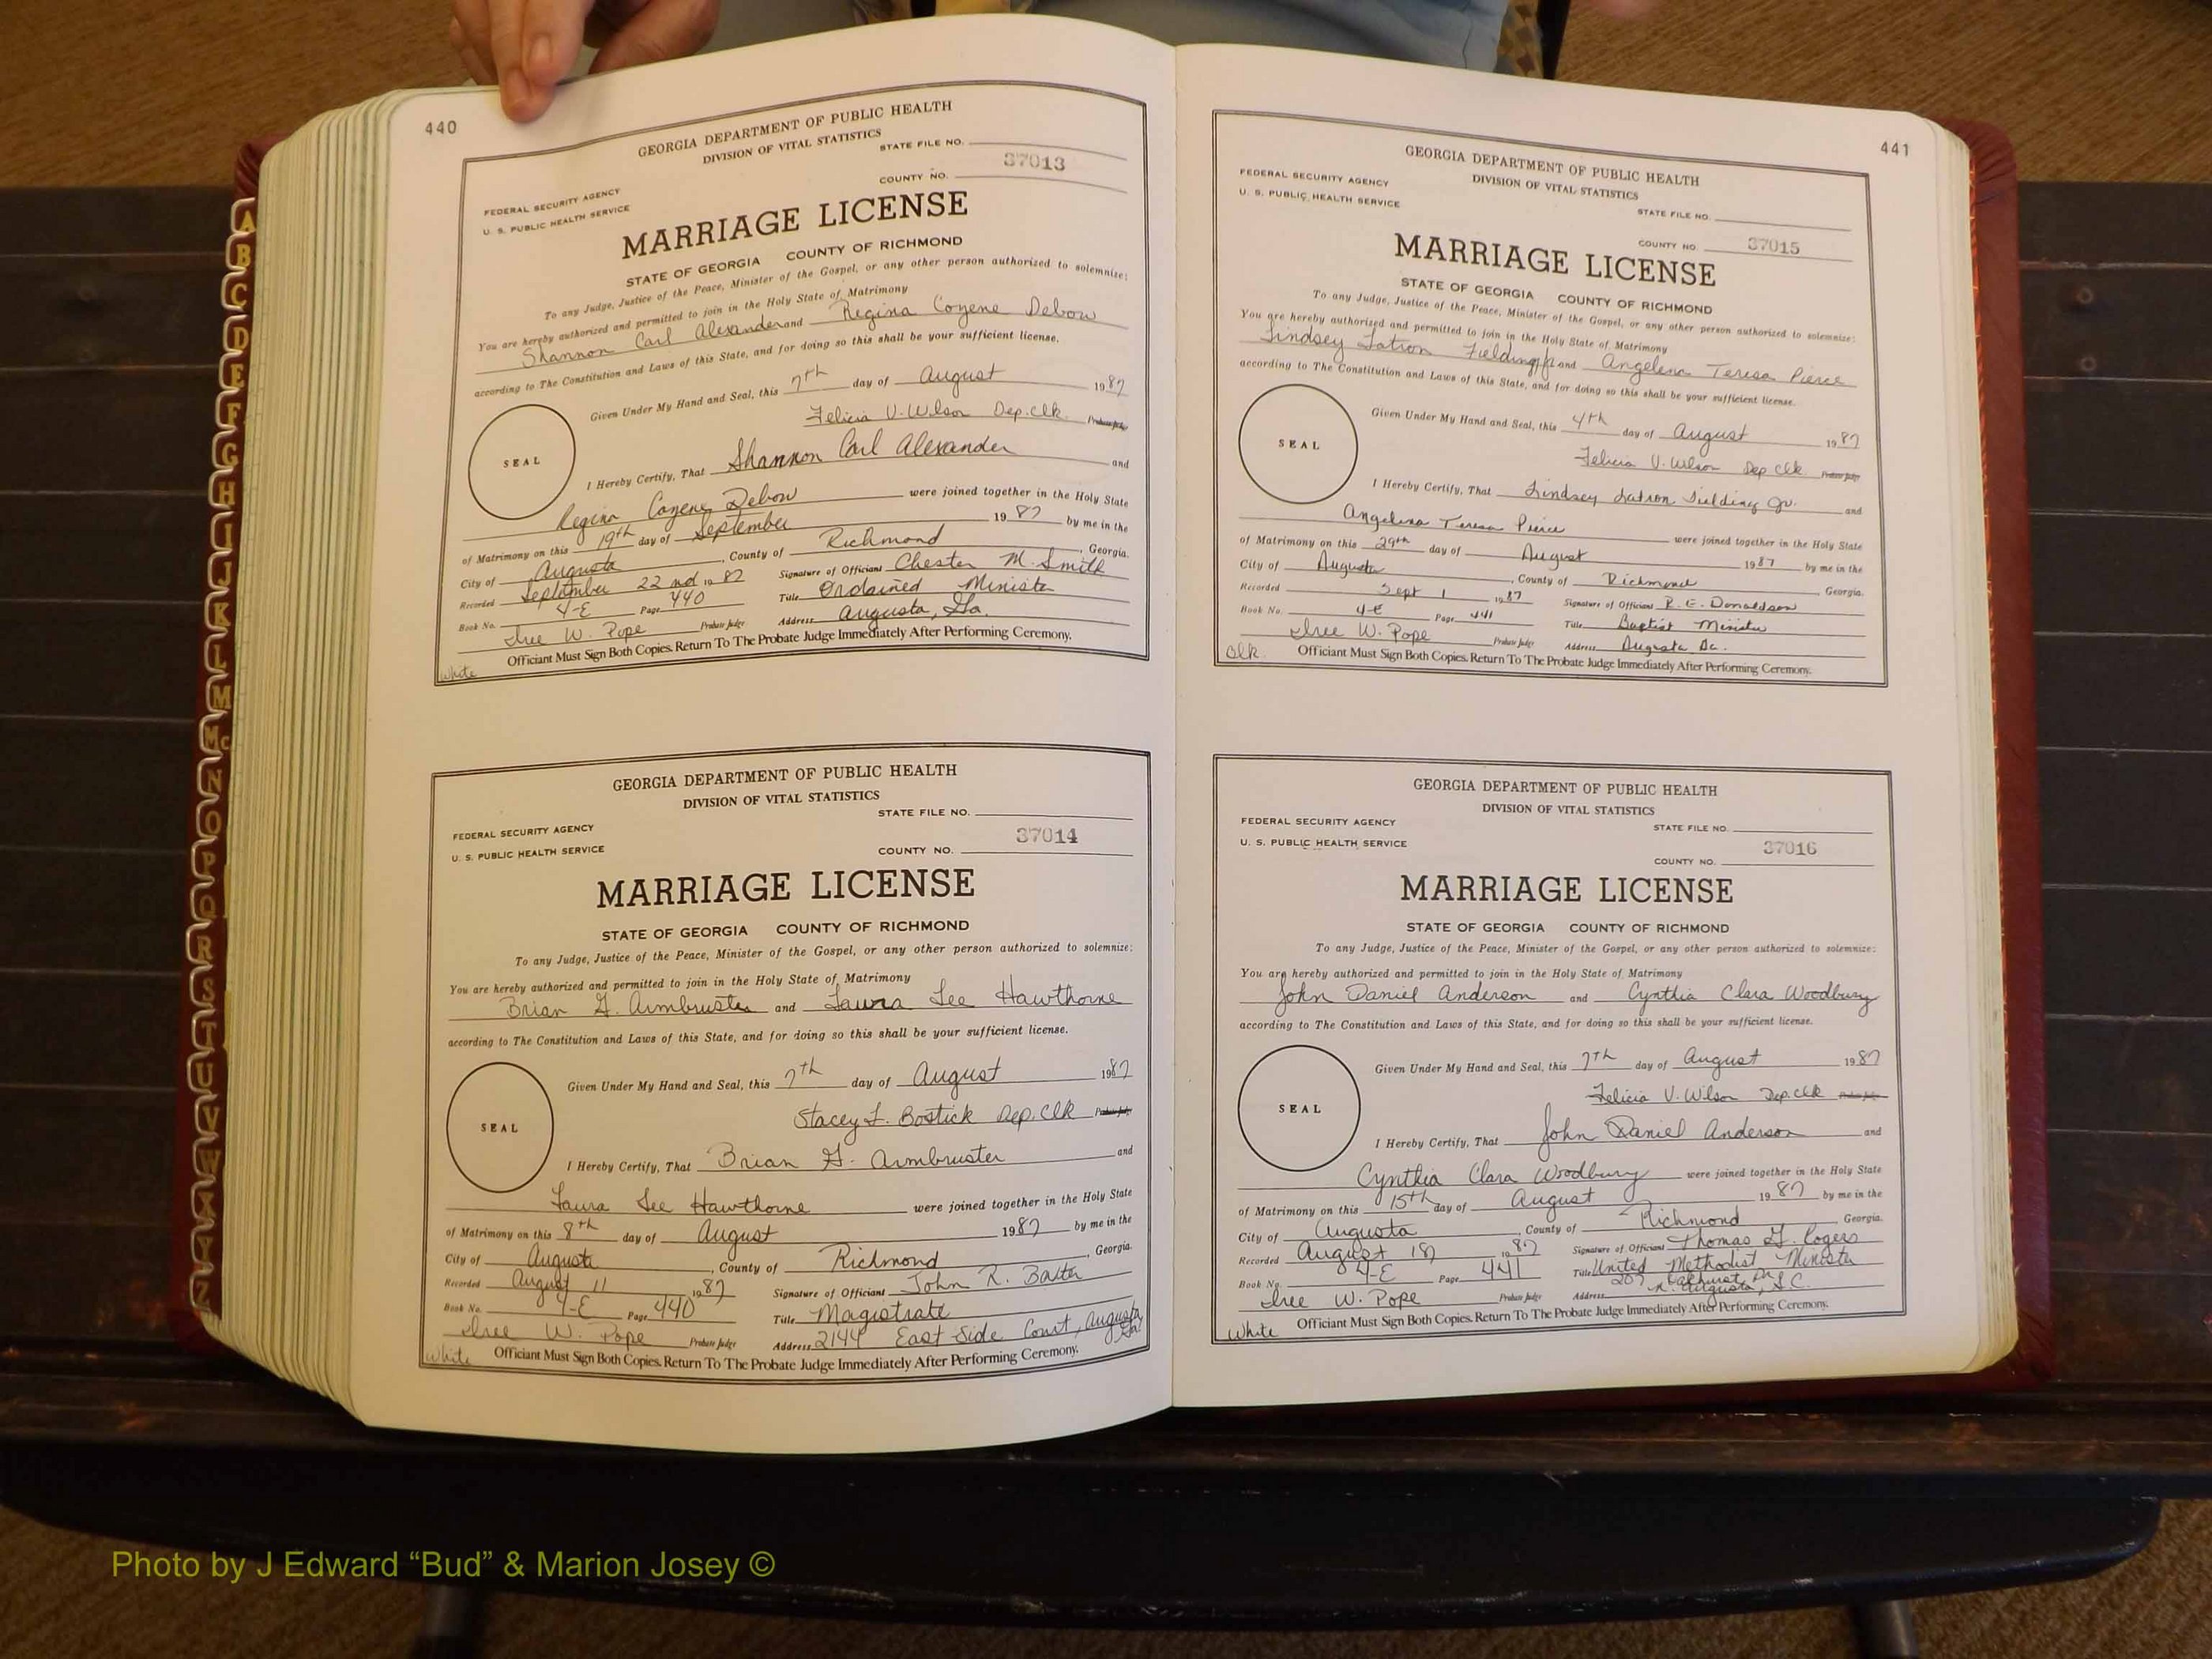 440
GEORGIA DEPARTMENT OF PUBLIC HEALTH
DIVISION OF VITAL STATISTICS
STATE FILE NO.
37013
COUNTY NO.
FEDERAL SECURITY AGENCY
U. S. PUBLIC HEALTH SERVICE
MARRIAGE LICENSE
STATE OF GEORGIA COUNTY OF RICHMOND
To any Judge, Justice of the Peace, Minister of the Gospel, or any other person authorized to solemnize:
You are hereby authorized and permitted to join in the Holy State of Matrimony
Shannon Carl Alexander and Regina Coyene Debow
according to The Constitution and Laws of this State, and for doing so this shall be your sufficient license.
Given Under My Hand and Seal, this 7th day of August 1987
Felicia V. Wilson Dep. Clk. Probate Judge
SEAL
I Hereby Certify, That Shannon Carl Alexander and
Regina Coyene Debow were joined together in the Holy State
of Matrimony on this 19th day of September 1987 by me in the
City of Augusta, County of Richmond, Georgia.
Recorded September 22nd 1987 Signature of Officiant Chester M. Smith
Book No. 4-E Page 440 Title Ordained Minister
Iree W. Pope Probate Judge Address Augusta, Ga.
Officiant Must Sign Both Copies. Return To The Probate Judge Immediately After Performing Ceremony.
White
GEORGIA DEPARTMENT OF PUBLIC HEALTH
DIVISION OF VITAL STATISTICS
STATE FILE NO.
FEDERAL SECURITY AGENCY
37014
U. S. PUBLIC HEALTH SERVICE
COUNTY NO.
MARRIAGE LICENSE
STATE OF GEORGIA COUNTY OF RICHMOND
To any Judge, Justice of the Peace, Minister of the Gospel, or any other person authorized to solemnize:
You are hereby authorized and permitted to join in the Holy State of Matrimony
Brian G. Armbruster and Laura Lee Hawthorne
according to The Constitution and Laws of this State, and for doing so this shall be your sufficient license.
Given Under My Hand and Seal, this 7th day of August 1987
Stacey L. Bostick Dep. Clk Probate Judge
SEAL
I Hereby Certify, That Brian G. Armbruster and
Laura Lee Hawthorne were joined together in the Holy State
of Matrimony on this 8th day of August 1987 by me in the
City of Augusta, County of Richmond, Georgia.
Recorded August 11 1987 Signature of Officiant John R. Baxter
Book No. 4-E Page 440 Title Magistrate
Iree W. Pope Probate Judge Address 2144 East Side Court, Augusta Ga.
Officiant Must Sign Both Copies. Return To The Probate Judge Immediately After Performing Ceremony.
White
441
GEORGIA DEPARTMENT OF PUBLIC HEALTH
FEDERAL SECURITY AGENCY
DIVISION OF VITAL STATISTICS
U. S. PUBLIC HEALTH SERVICE
STATE FILE NO.
COUNTY NO 37015
MARRIAGE LICENSE
STATE OF GEORGIA COUNTY OF RICHMOND
To any Judge, Justice of the Peace, Minister of the Gospel, or any other person authorized to solemnize:
You are hereby authorized and permitted to join in the Holy State of Matrimony
Lindsey Latron Fielding Jr and Angelena Teresa Pierce
according to The Constitution and Laws of this State, and for doing so this shall be your sufficient license.
Given Under My Hand and Seal, this 4th day of August 1987
Felicia V. Wilson Dep Clk. Probate Judge
SEAL
I Hereby Certify, That Lindsey Latron Fielding Jr. and
Angelena Teresa Pierce were joined together in the Holy State
of Matrimony on this 29th day of August 1987 by me in the
City of Augusta, County of Richmond Georgia.
Recorded Sept 1 1987 Signature of Officiant R. E. Donaldson
Book No. 4-E Page 441 Title Baptist Minister
Iree W. Pope Probate Judge Address Augusta Ga.
Officiant Must Sign Both Copies. Return To The Probate Judge Immediately After Performing Ceremony.
Blk.
GEORGIA DEPARTMENT OF PUBLIC HEALTH
DIVISION OF VITAL STATISTICS
FEDERAL SECURITY AGENCY
STATE FILE NO.
U. S. PUBLIC HEALTH SERVICE
37016
COUNTY NO.
MARRIAGE LICENSE
STATE OF GEORGIA COUNTY OF RICHMOND
To any Judge, Justice of the Peace, Minister of the Gospel, or any other person authorized to solemnize:
You are hereby authorized and permitted to join in the Holy State of Matrimony
John Daniel Anderson and Cynthia Clara Woodbury
according to The Constitution and Laws of this State, and for doing so this shall be your sufficient license.
Given Under My Hand and Seal, this 7th day of August 1987
Felicia V. Wilson Dep. Clk Probate Judge
SEAL
I Hereby Certify, That John Daniel Anderson and
Cynthia Clara Woodbury were joined together in the Holy State
of Matrimony on this 15th day of August 1987 by me in the
City of Augusta, County of Richmond, Georgia.
Recorded August 1987 Signature of Officiant Thomas G. Rogers
Book No. 4-E Page 441 Title United Methodist Minister
Iree W. Pope Probate Judge Address 207 Dr. N. Augusta, S.C.
Officiant Must Sign Both Copies. Return To The Probate Judge Immediately After Performing Ceremony.
White
A
B
C
D
E
F
G
H
I
J
K
L
M
Mc
N
O
P
Q
R
S
T
U
V
W
X
Y
Z
Photo by J Edward “Bud” & Marion Josey ©